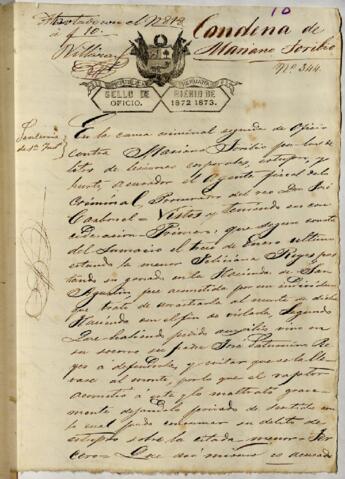 10
Condena de
Mariano Toribio
Nº 344.
á f 10.
SELLO DE
OFICIO.
BIENIO DE
1872 1873.
Sentencia
de 1ª Inst
En la causa criminal seguida de Oficio
contra Mariano Toribio por los de
litos de lesiones corporales, estupro, y
hurto, acusador el Agente fiscal de lo
Criminal, Procurador del reo Don José
Vistos y teniendo en con
sideracion = Primero: que segun consta
del Sumario el trece de Enero ultimo
estando la menor Feliciana Reyes pas
tando su ganado en la Hacienda de San
Agustin, fue acometida por un individuo
que trató de arrastrarla al monte de dicha
Hacienda con el fin de violarla, Segundo
Que habiendo pedido auxilio vino en
su socorro su padre Don Saturnino Re
yes a defenderla, y evitar que se la lle
vase al monte, por lo que el raptor
acometió a este y lo maltrató grave
mente dejandolo privado de sentido con
lo cual pudo consumar su delito de
estupro sobre la citada menor = Ter
cero = Que del mismo es acusado